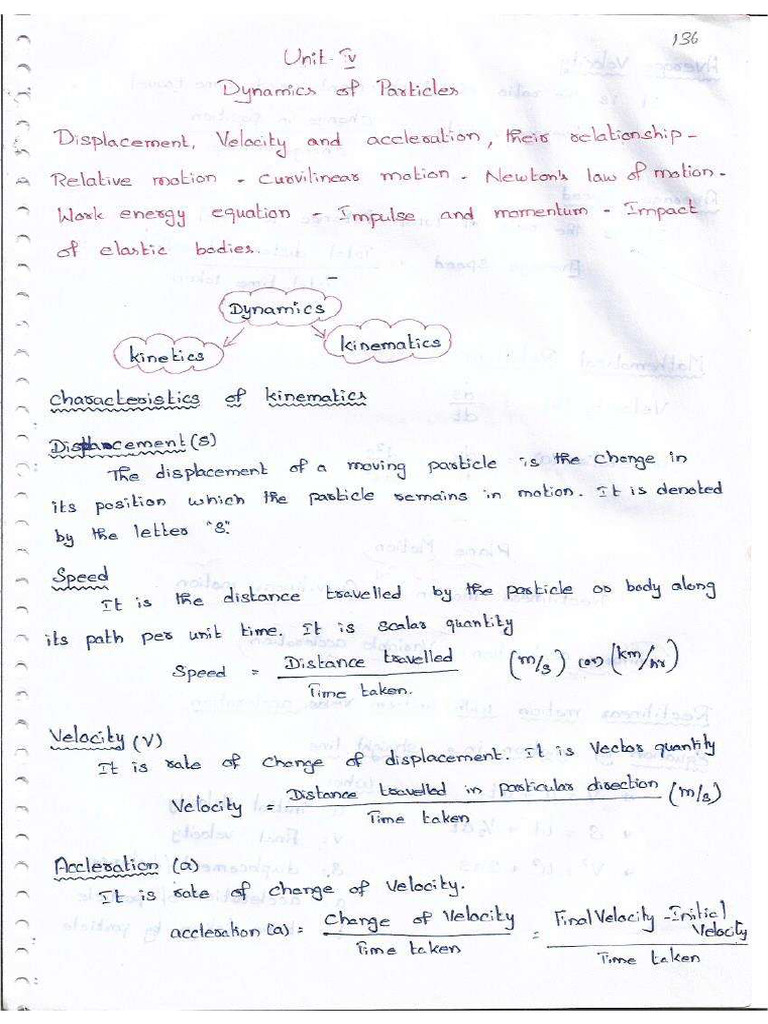 136
Unit-IV
Dynamics of Particles
Displacement, Velocity and accleration, their relationship -
Relative motion - Curvilinear motion - Newton's law of motion -
Work energy equation - Impulse and momentum - Impact
of elastic bodies.
Dynamics
kinetics
kinematics
Characteristics of kinematics
Displacement (s)
The displacement of a moving particle is the change in
its position which the particle remains in motion. It is denoted
by the letter "S".
Speed
It is the distance travelled by the particle or body along
its path per unit time. It is scalar quantity
Speed = Distance travelled / Time taken. (m/s) (or) (km/hr)
Velocity (V)
It is rate of change of displacement. It is Vector quantity
Velocity = Distance travelled in particular direction / Time taken (m/s)
Accleration (a)
It is rate of change of Velocity.
accleration (a) = Change of Velocity / Time taken = Final Velocity - Initial Velocity / Time taken